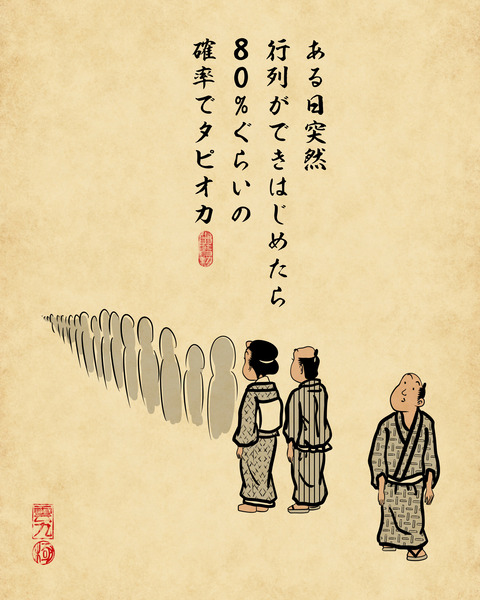 ある日突然
行列ができはじめたら
80%ぐらいの
確率でタピオカ